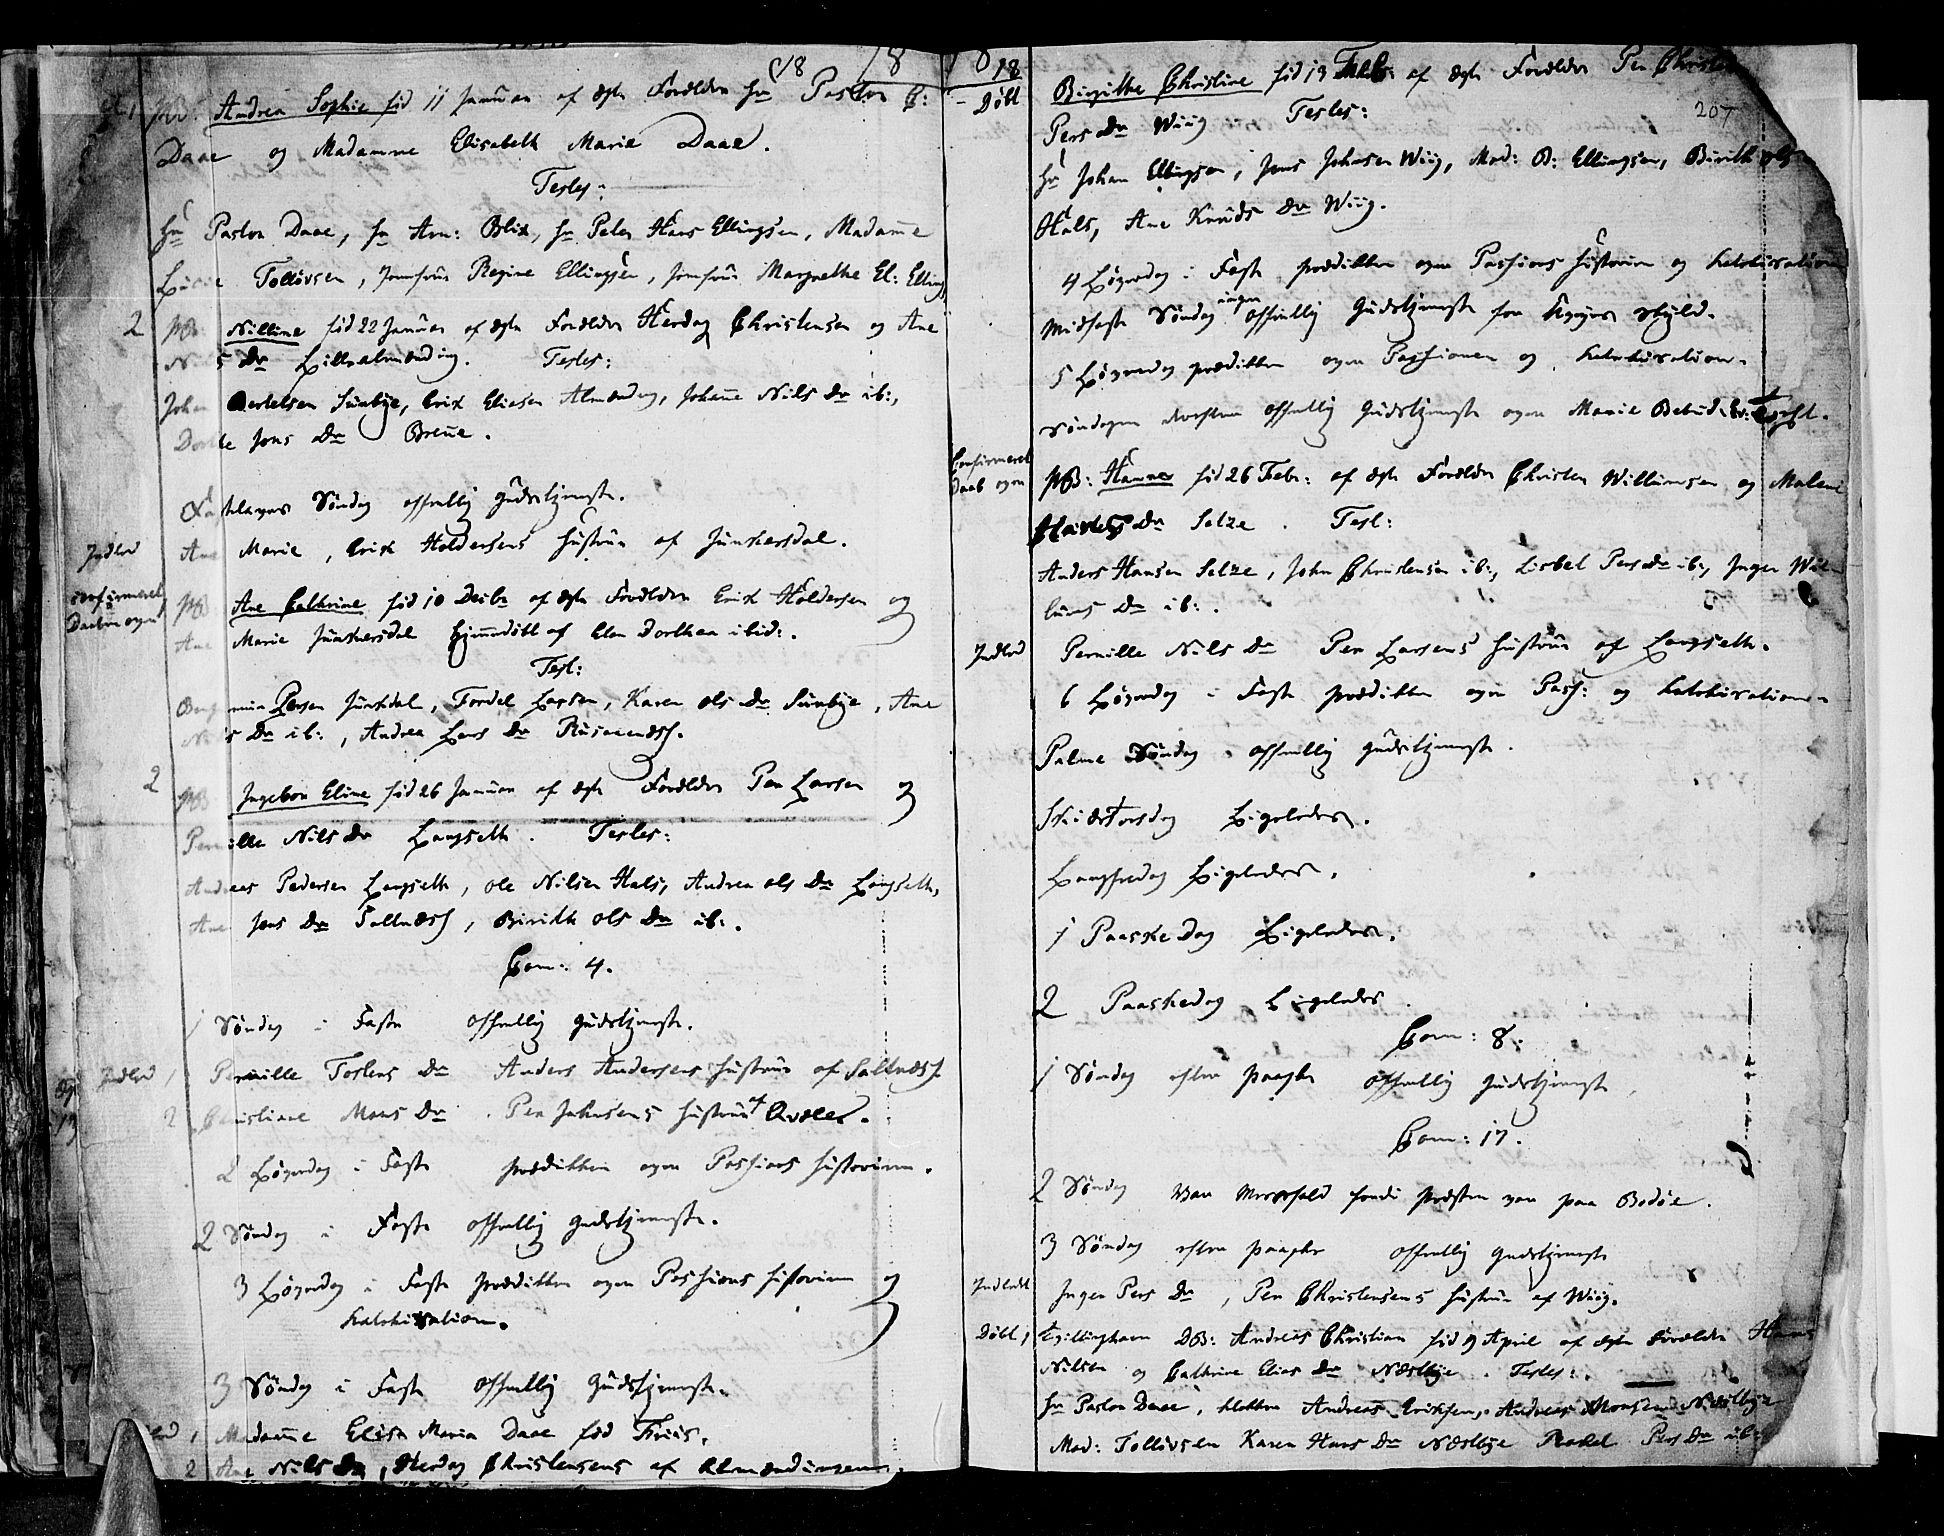 18 18
1 PB: Andrea Sophie fød 11 Januar af ægte Forældre Hr Pastor C:
Daae og Madamme Elisabeth Marie Daae.
Testes:
Hr Pastor Daae, Hr Arn: Blix, Hr Peter Hans Ellingsen, Madame
Tollevsen, Jomfrue Regine Ellingsen, Jomfrue Margrethe El: Ellings
2 PB Nilline fød 22 Januar af ægte Forældre Herdag Christensen og Ane
Nils Dr Lillealmending. Testes:
Johan Bertelsen Sunbye, Erik Eliasen Almending, Johane Nils Dr ib:,
Dorthe Jens Dr Brene.
Fastelavns Søndag offentlig Gudstjeneste.
Indled Ane Marie, Erik Holdersens Hustrue af Junkersdal.
confirmeret Daaben PB Ane Cathrine fød 10 Decbr af ægte Forældre Erik Holdersen og
Ane Marie Junkersdal hjemmedøbt af Elen Dorthea ibid:.
Test:
Persen Junkdal, Tordel Larsen, Karen Ols Dr Sunbye, Ane
Nils Dr ib:, Andrea Lars Dr
2 PB Ingebor Eline fød 26 Januar af ægte Forældre Per Larsen og
Pernille Nils Dr Langseth. Testes:
Andreas Pedersen Langseth, Ole Nilsen Hals, Andrea Ols Dr Langseth,
Ane Jens Dr Saltnæss, Birith Ols Dr ib:.
Com: 4.
1 Søndag i Faste offentlig Gudstjeneste.
Indled 1 Pernille Dr Anders Andersens Hustrue af Saltnæss
2 Christiane Mons Dr. Per Johnsens Hustrue af Qvæle.
2 Løverdag i Faste prædiken over Passions Historien.
2 Søndag i Faste offentlig Gudstjeneste.
3 Løverdag i Faste Prædiken over Passions Historien og
Katekisation.
3 Søndag i Faste offentlig Gudstjeneste.
1 Madamme Elisa Maria Daae fød Friis.
2 Ane Nils Dr, Herdag Christensens af Almendingen.
18
207
Døbt Birgithe Christine fød 13 Febr: af ægte Forældre Per Christen
Pers Dr Wiig Testes:
Hr Johan Ellingsen, Jens Johnsen Wiig, Mad: B: Ellingsen, Birith Ols
Hals, Ane Knuds Dr Wiig.
4 Løverdag i Faste prædiken over Passions Historien og Katekisation
Midfaste Søndag ingen offentlig Gudstjeneste for skyld.
5 Løverdag prædiken over Passionen og Katekisation.
Søndagen derefter offentlig Gudstjeneste over Marie
Confirmeret Daab over PB: Hanna fød 26 Febr: af ægte Forældre Christen Willumsen og Malene
Dr Selze. Test:
Anders Hansen Selze, John Christensen ib:, Lisbet Pers Dr ib:, Inger Wil-
lums Dr ib:.
Indled Pernille Nils Dr Per Larsens Hustrue af Langseth.
6 Løverdag i Faste prædiken over Pass: og Katekisation.
Palme Søndag offentlig Gudstjeneste.
Skiærtorsdag Ligeledes.
Langfredag Ligeledes.
1 Paaske Dag Ligeledes.
2 Paaskedag Ligeledes.
Com: 8.
1 Søndag efter Paaske offentlig Gudstjeneste
Com: 17.
2 Søndag var Messefald fordi Præsten var paa Bodøe.
3 Søndag efter Paaske offentlig Gudstjeneste
Indledt Inger Pers Dr, Per Christensens Hustrue af Wiig.
Døbt 1 Tvillingbarn DB: Andreas Christian fød 9 April af ægte Forældre Hans
Nilsen og Cathrine Elias Dr Næstbye. Testes:
Hr Pastor Daae, Klokker Andreas Eriksen, Andreas Monsen Næstbye
Mad: Tollevsen Karen Hans Dr Næstbye Rakel Pers Dr ib: